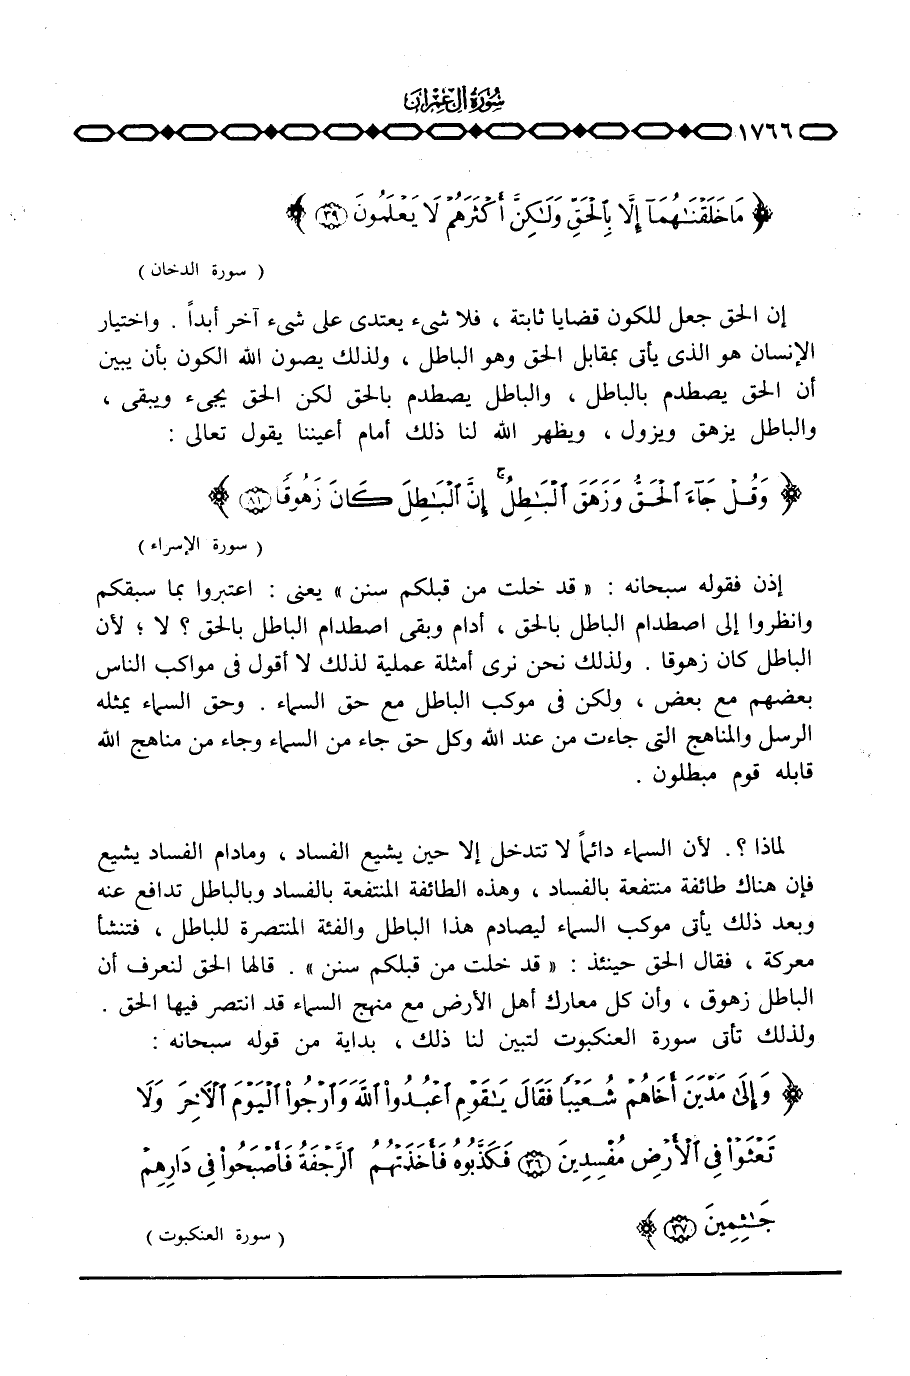 سُورَةُ آلِ عِمْرَان
١٧٦٦
﴿ مَا خَلَقْنَٰهُمَآ إِلَّا بِٱلْحَقِّ وَلَٰكِنَّ أَكْثَرَهُمْ لَا يَعْلَمُونَ ﴿٣٩﴾ ﴾
( سورة الدخان )
إن الحق جعل للكون قضايا ثابتة ، فلا شىء يعتدى على شىء آخر أبداً . واختيار
الإنسان هو الذى يأتى بمقابل الحق وهو الباطل ، ولذلك يصون الله الكون بأن يبين
أن الحق يصطدم بالباطل ، والباطل يصطدم بالحق لكن الحق يجىء ويبقى ،
والباطل يزهق ويزول ، ويظهر الله لنا ذلك أمام أعيننا يقول تعالى :
﴿ وَقُلْ جَآءَ ٱلْحَقُّ وَزَهَقَ ٱلْبَٰطِلُ ۚ إِنَّ ٱلْبَٰطِلَ كَانَ زَهُوقًا ﴿٨١﴾ ﴾
( سورة الإسراء )
إذن فقوله سبحانه : « قد خلت من قبلكم سنن » يعنى : اعتبروا بما سبقكم
وانظروا إلى اصطدام الباطل بالحق ، أدام وبقى اصطدام الباطل بالحق ؟ لا ؛ لأن
الباطل كان زهوقا . ولذلك نحن نرى أمثلة عملية لذلك لا أقول فى مواكب الناس
بعضهم مع بعض ، ولكن فى موكب الباطل مع حق السماء . وحق السماء يمثله
الرسل والمناهج التى جاءت من عند الله وكل حق جاء من السماء وجاء من مناهج الله
قابله قوم مبطلون .
لماذا ؟. لأن السماء دائماً لا تتدخل إلا حين يشيع الفساد ، ومادام الفساد يشيع
فإن هناك طائفة منتفعة بالفساد ، وهذه الطائفة المنتفعة بالفساد وبالباطل تدافع عنه
وبعد ذلك يأتى موكب السماء ليصادم هذا الباطل والفئة المنتصرة للباطل ، فتنشأ
معركة ، فقال الحق حينئذ : « قد خلت من قبلكم سنن » . قالها الحق لنعرف أن
الباطل زهوق ، وأن كل معارك أهل الأرض مع منهج السماء قد انتصر فيها الحق .
ولذلك تأتى سورة العنكبوت لتبين لنا ذلك ، بداية من قوله سبحانه :
﴿ وَإِلَىٰ مَدْيَنَ أَخَاهُمْ شُعَيْبًا فَقَالَ يَٰقَوْمِ ٱعْبُدُوا۟ ٱللَّهَ وَٱرْجُوا۟ ٱلْيَوْمَ ٱلْءَاخِرَ وَلَا
تَعْثَوْا۟ فِى ٱلْأَرْضِ مُفْسِدِينَ ﴿٣٦﴾ فَكَذَّبُوهُ فَأَخَذَتْهُمُ ٱلرَّجْفَةُ فَأَصْبَحُوا۟ فِى دَارِهِمْ
جَٰثِمِينَ ﴿٣٧﴾ ﴾
( سورة العنكبوت )